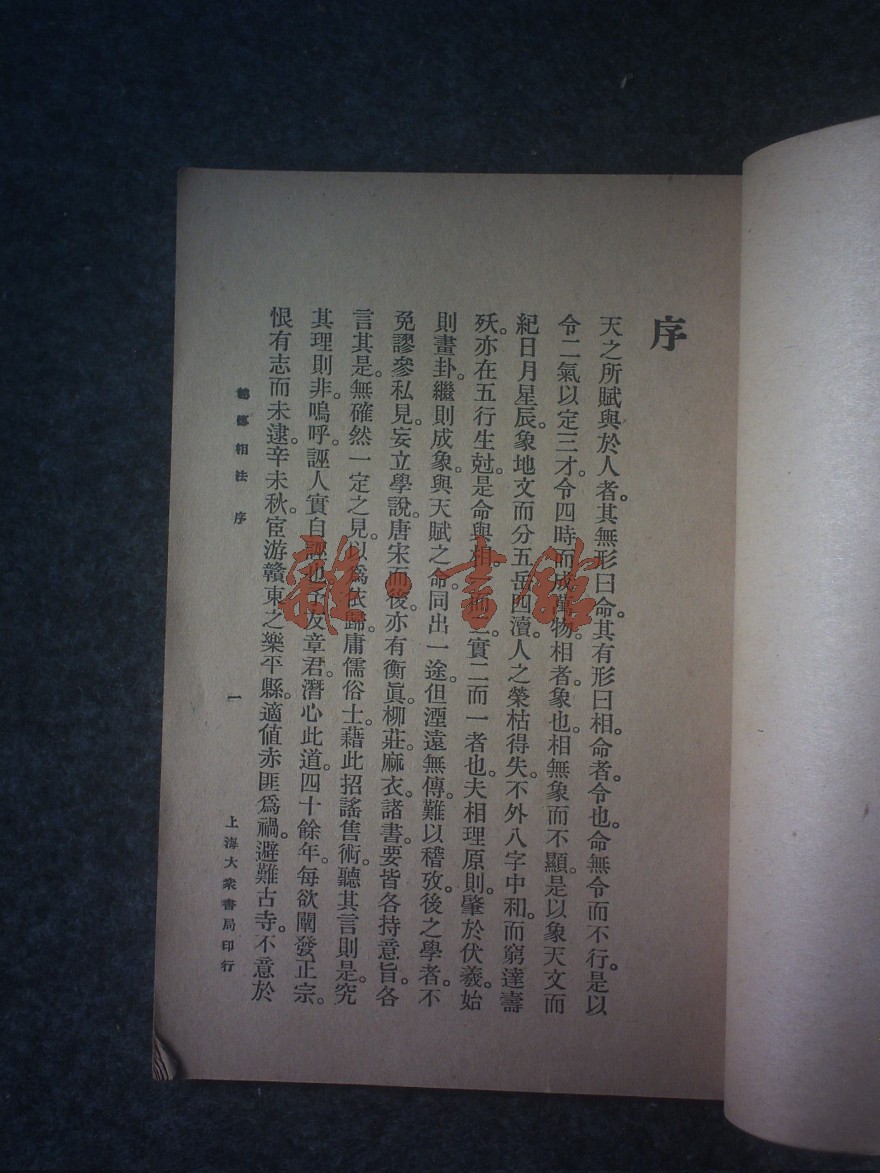 序
天之所賦與於人者。其無形曰命。其有形曰相。命者。令也。命無令而不行。是以
令二氣以定三才。令四時而成萬物。相者。象也。相無象而不顯。是以象天文而
紀日月星辰。象地文而分五岳四瀆。人之榮枯得失。不外八字中和。而窮達壽
殀。亦在五行生尅。是命與相。一而二。實二而一者也。夫相理原則。肇於伏羲。始
則畫卦。繼則成象。與天賦之命。同出一途。但湮遠無傳。難以稽攷。後之學者。不
免謬參私見。妄立學說。唐宋而後。亦有衡眞。柳莊。麻衣。諸書。要皆各持意旨。各
言其是。無確然一定之見。以爲依歸。庸儒俗士。藉此招謠售術。聽其言則是。究
其理則非。嗚呼。誣人實自誣也。予友章君。潛心此道。四十餘年。每欲闡發正宗。
恨有志而未逮。辛未秋。宦游贛東之樂平縣。適值赤匪爲禍。避難古寺。不意於
相法 序
一
上海大衆書局印行
雜·書館